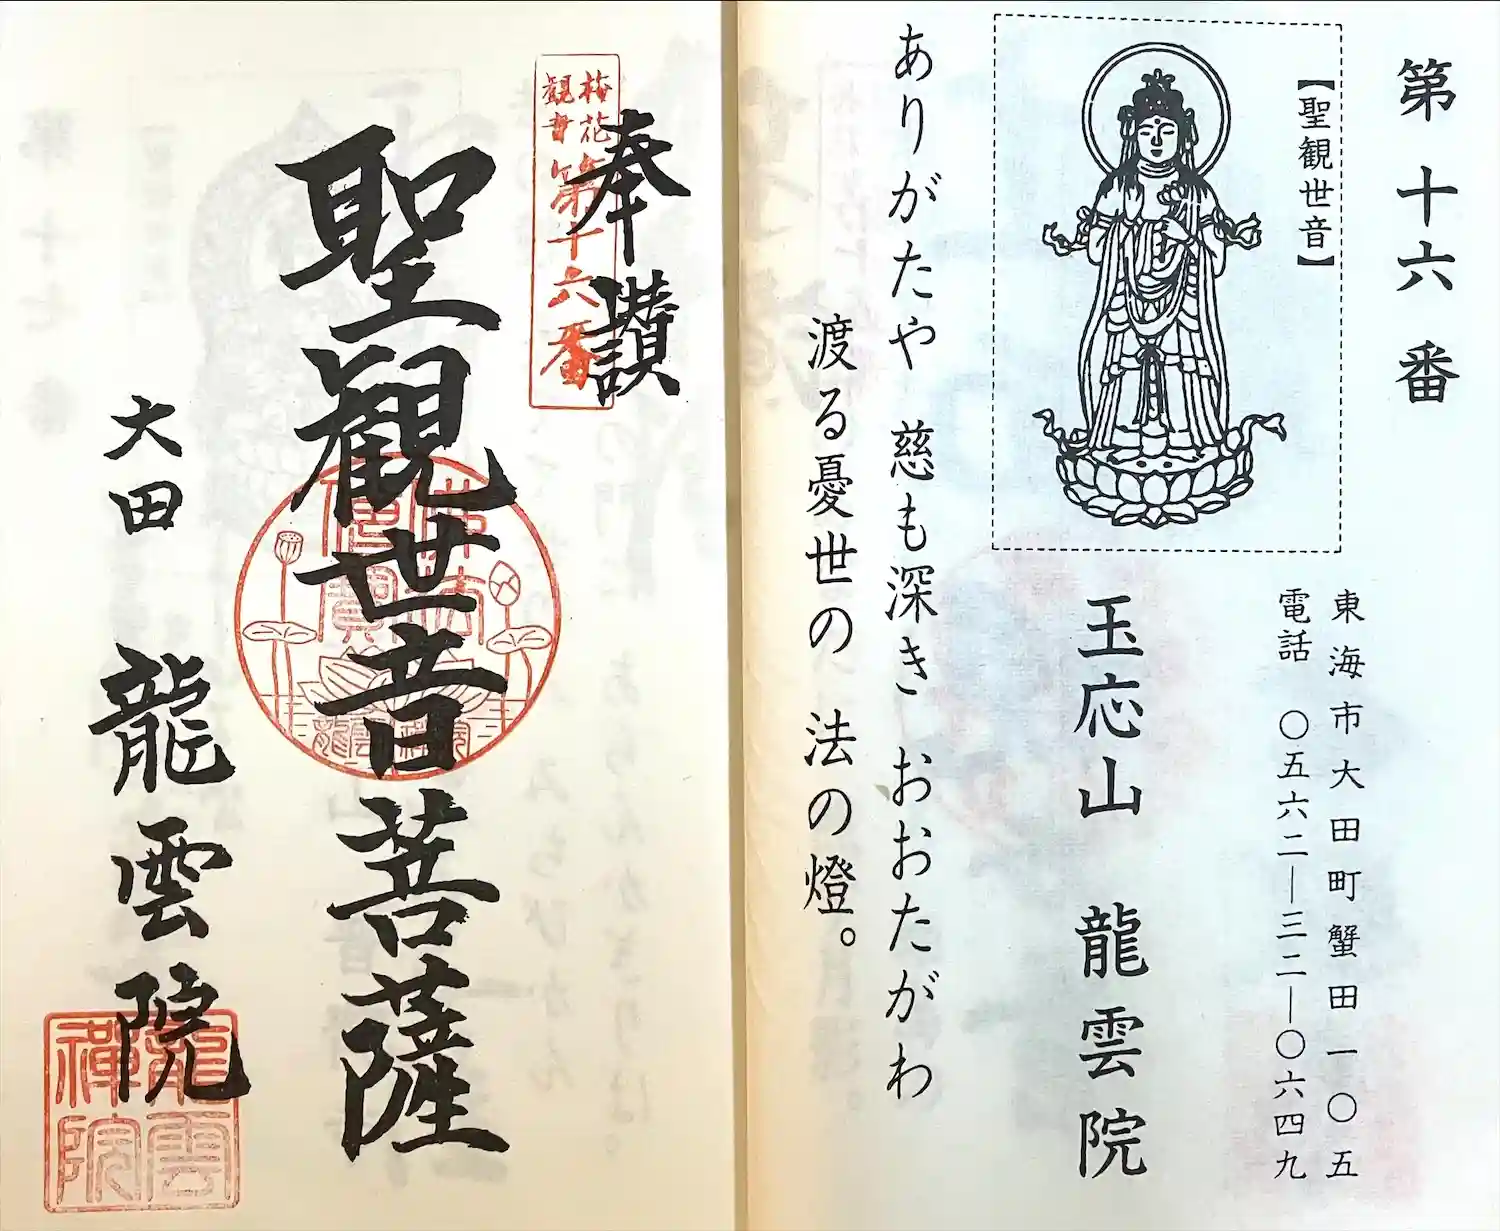 第十六番
【聖観世音】
東海市大田町蟹田一〇五
電話 〇五六二―三二―〇六四九
玉応山 龍雲院
ありがたや 慈も深き おおたがわ
渡る憂世の 法の燈。
奉讃
梅花
観音
第十六番
聖観世音菩薩
佛法
僧寶
龍雲禅院
大田 龍雲院
龍雲
禅院